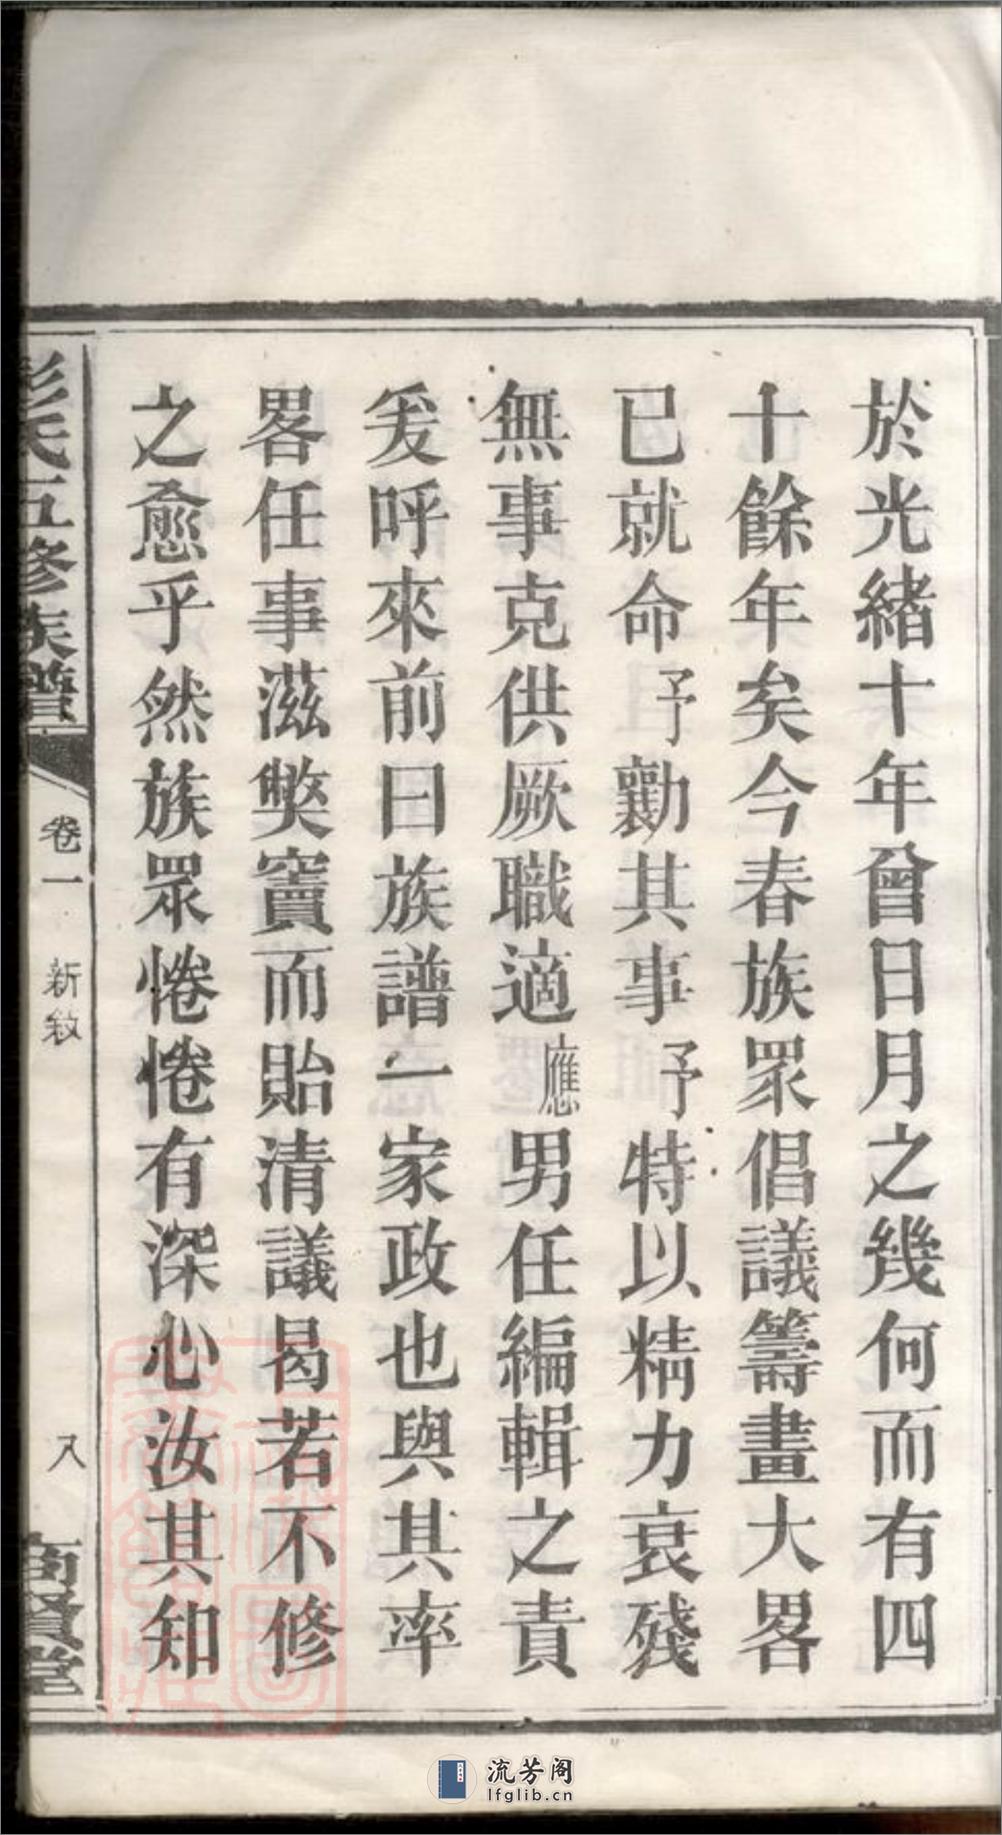 於光緒十年曾日月之幾何而有四
十餘年矣今春族眾倡議籌畫大畧
已就命予勷其事予特以精力衰殘
無事克供厥職適應男任編輯之責
爰呼來前曰族譜一家政也與其率
畧任事滋獘竇而貽清議曷若不修
之愈乎然族眾惓惓有深心汝其知
彭氏五修族譜
卷一
新敘
八
商賢堂
流芳阁
lfglib.cn